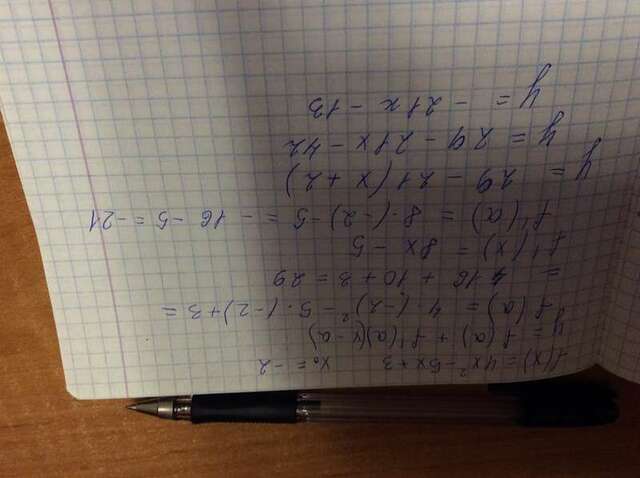 f(x) = 4x² - 5x + 3 x₀ = -2
y = f(a) + f'(a)(x - a)
f(a) = 4 · (-2)² - 5 · (-2) + 3 =
= 16 + 10 + 3 = 29
f'(x) = 8x - 5
f'(a) = 8 · (-2) - 5 = - 16 - 5 = -21
y = 29 - 21(x + 2)
y = 29 - 21x - 42
y = - 21x - 13